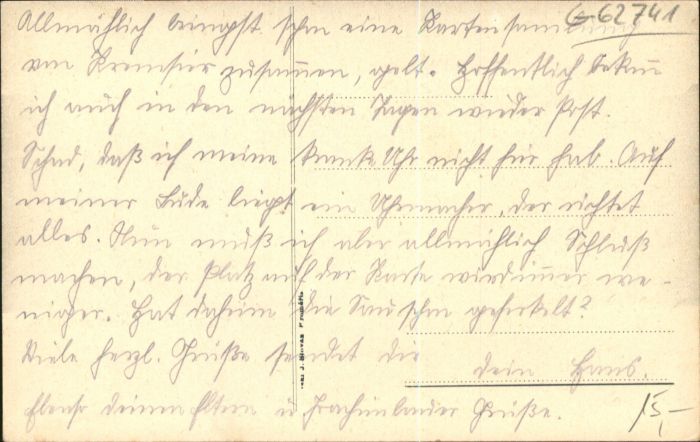 G-62741
Allmählich bringst schon eine Kartensammlung
von Kremsier zusammen, gelt. Hoffentlich bekomm
ich auch in den nächsten Tagen wieder Post.
Schad, daß ich meine kranke Uhr nicht hier hab. Auf
meiner Bude liegt ein Uhrmacher, der richtet
alles. Nun muß ich aber allmählich Schluß
machen, der Platz auf der Karte wird immer we-
niger. Hat daheim die Sau schon geferkelt?
Viele herzl. Grüße sendet dir
dein Hans.
Ebenso deinen Eltern u. Grüße.
15,-